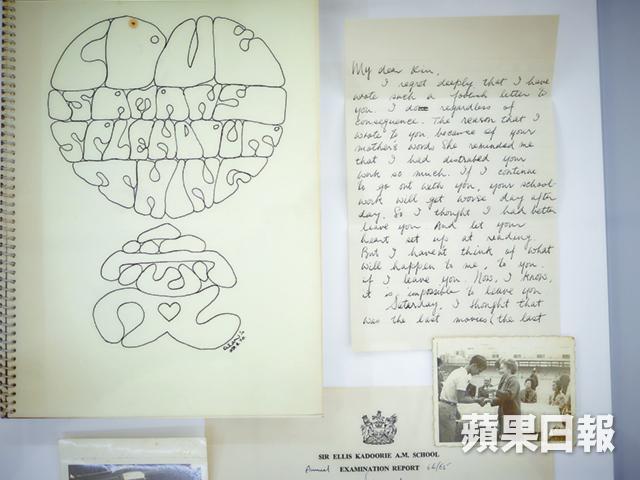 LOVE
THING
愛
My dear Kin,
I regret deeply that I have
wrote such a foolish letter to
you. I do regardless of
consequence. The reason that I
wrote to you because of your
mother's words. She reminded me
that I had distrabed your
work so much. If I continue
to go out with you, your school-
work will get worse day after
day. So I thought I had better
leave you. And let your
heart set up at reading.
But I havent think of what
will happen to me, to you.
if I leave you. Now, I know,
it is impossible to leave you
Saturday, I thought that
was the last movies (the last
SIR ELLIS KADOORIE A.M. SCHOOL
Annual EXAMINATION REPORT 64/65
蘋果日報